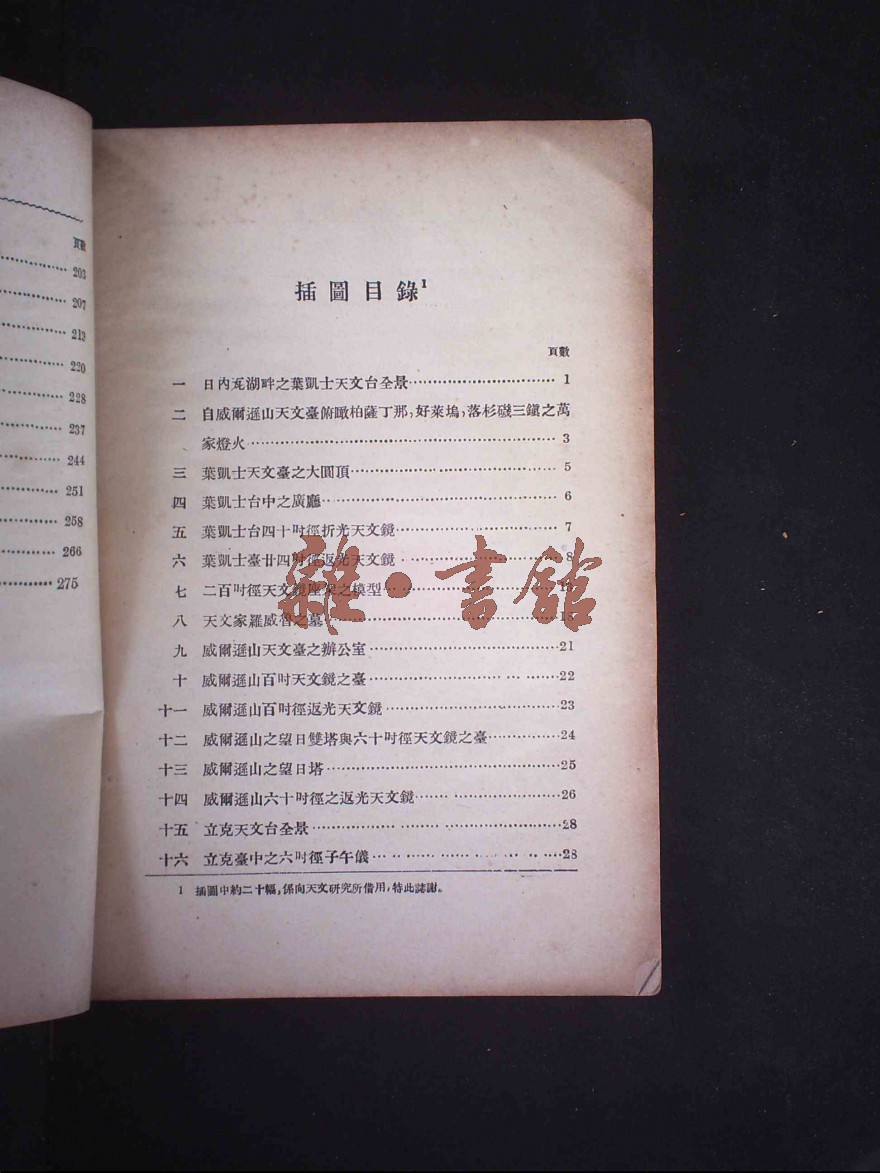 頁數
203
207
213
220
228
237
244
251
258
266
275
插圖目錄1
頁數
一 日內瓦湖畔之葉凱士天文台全景 1
二 自威爾遜山天文臺俯瞰柏薩丁那,好萊塢,落杉磯三鎭之萬
家燈火 3
三 葉凱士天文臺之大圓頂 5
四 葉凱士台中之廣廳 6
五 葉凱士台四十吋徑折光天文鏡 7
六 葉凱士臺廿四吋徑返光天文鏡 8
七 二百吋徑天文鏡座架之模型
八 天文家羅威智之墓
九 威爾遜山天文臺之辦公室 21
十 威爾遜山百吋天文鏡之臺 22
十一 威爾遜山百吋徑返光天文鏡 23
十二 威爾遜山之望日雙塔與六十吋徑天文鏡之臺 24
十三 威爾遜山之望日塔 25
十四 威爾遜山六十吋徑之返光天文鏡 26
十五 立克天文台全景 28
十六 立克臺中之六吋徑子午儀 28
1 插圖中約二十幅,係向天文研究所借用,特此誌謝。
雜·書館